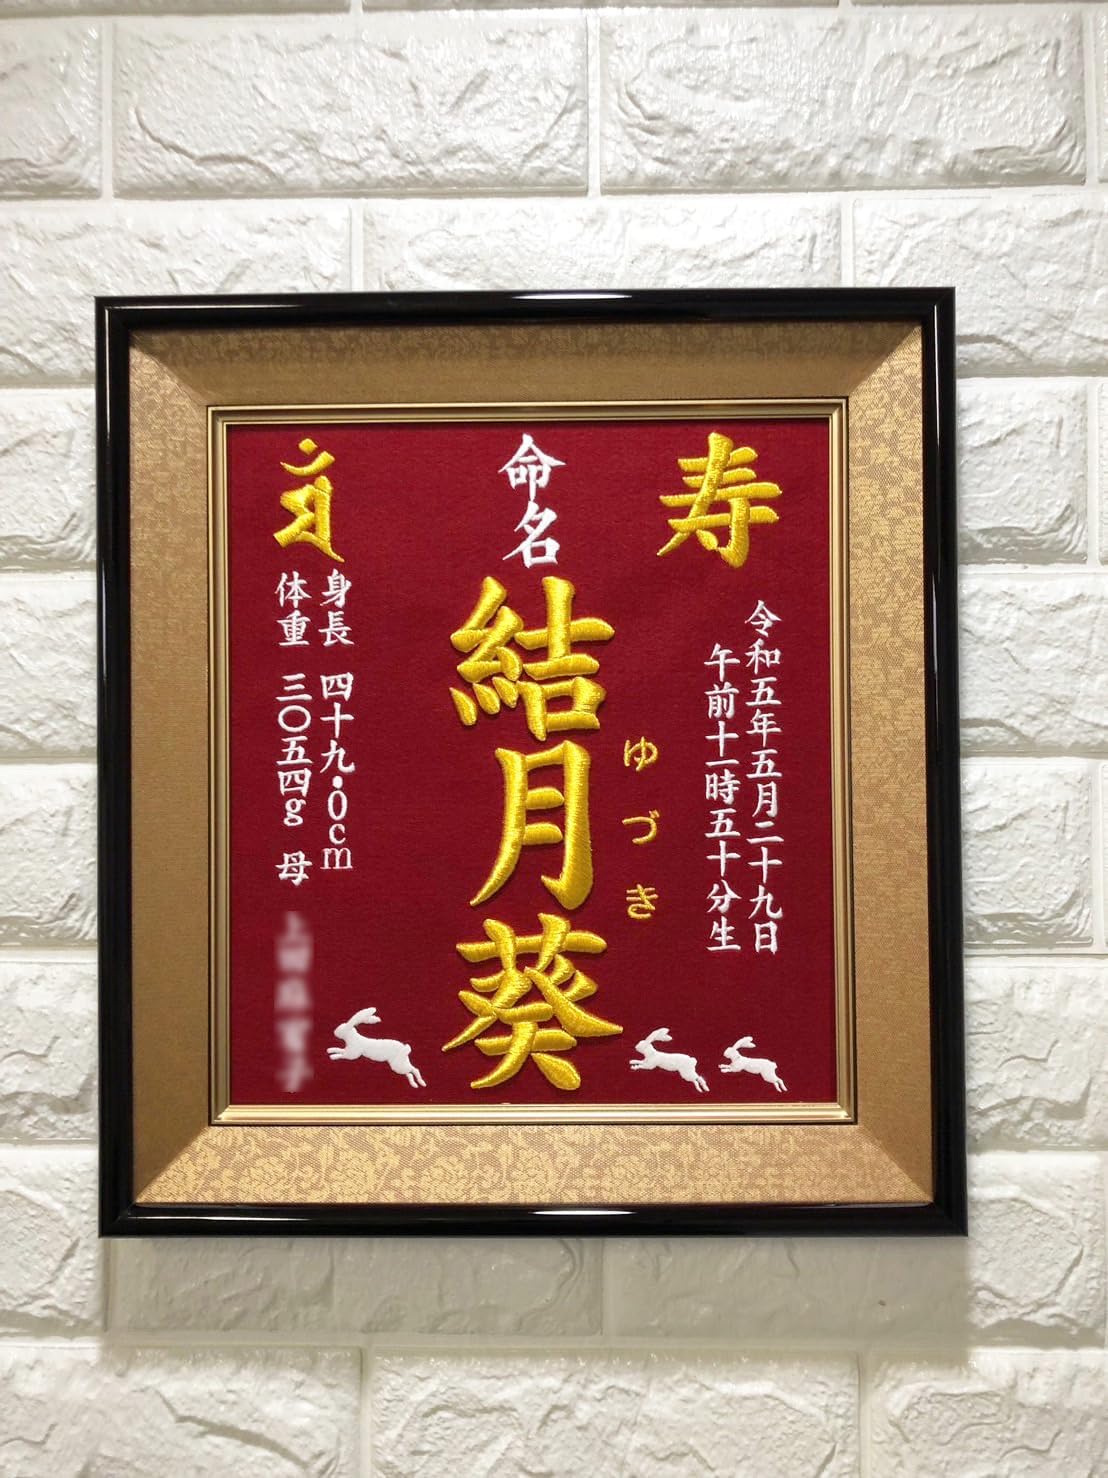 寿
令和五年五月二十九日
午前十一時五十分生
命名
結月葵
ゆづき
身長 四十九.0cm
体重 三〇五四g 母